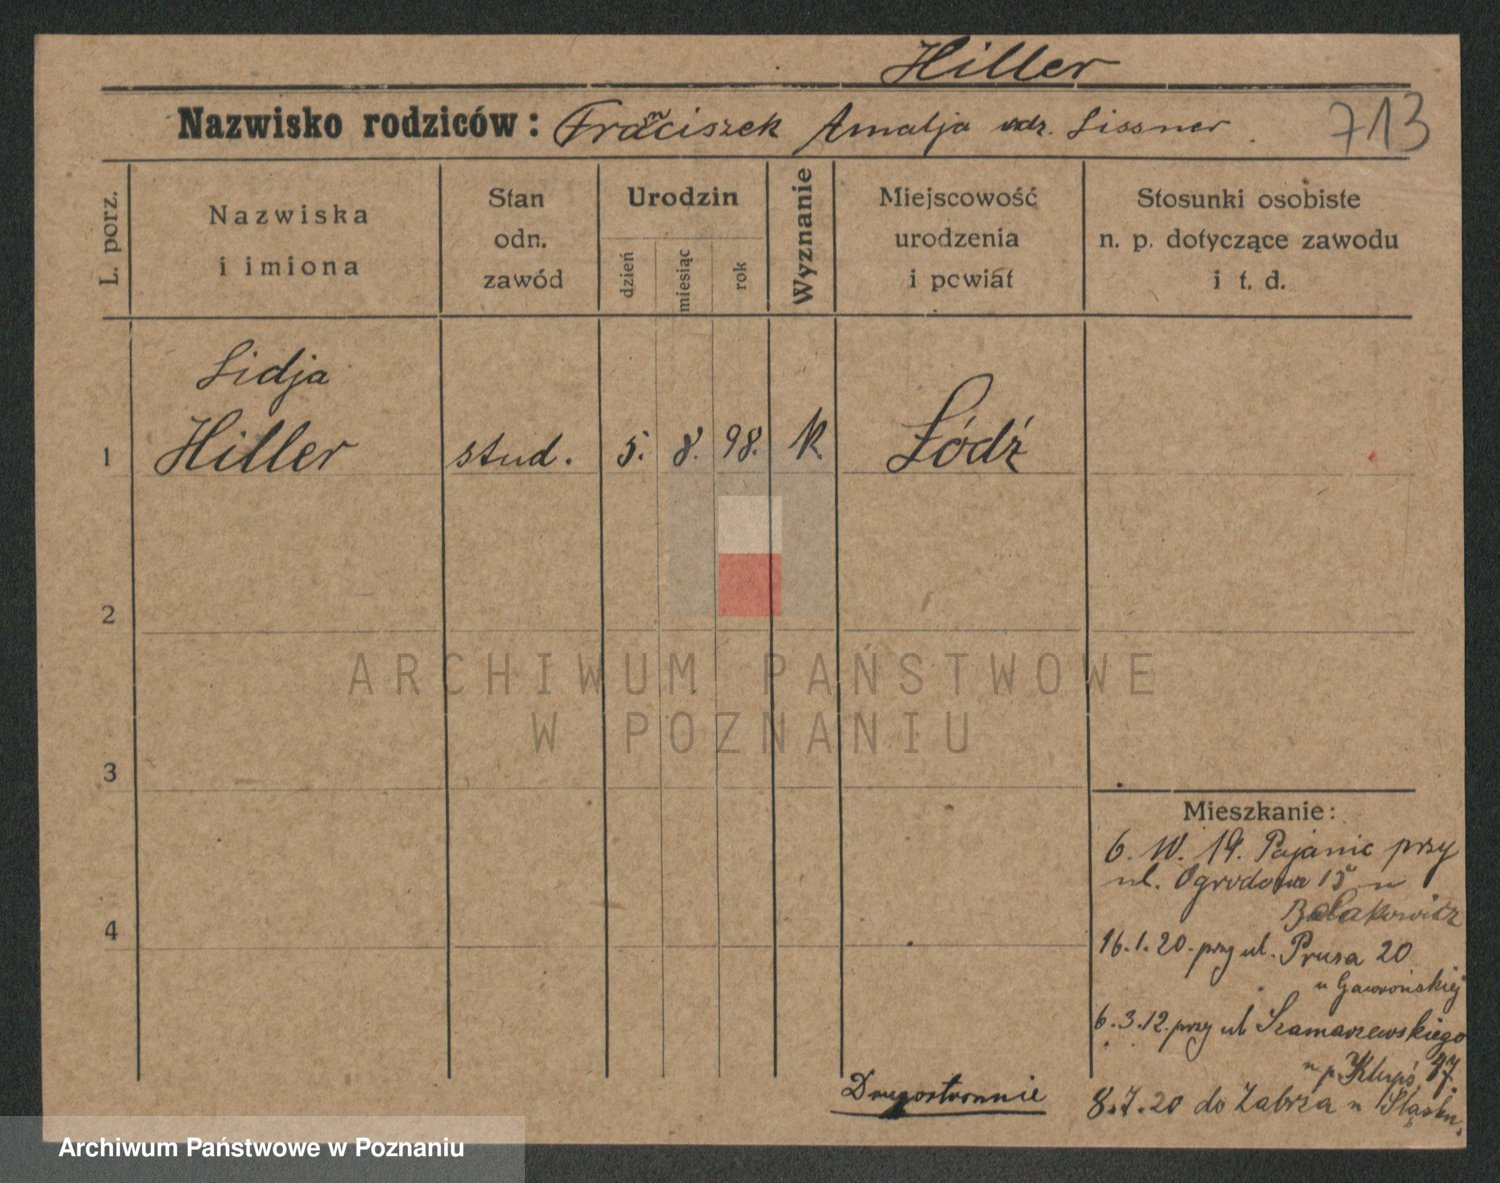 Hiller
Nazwisko rodziców: Franciszek Amalja Lissner
713
L. porz.
Nazwiska
i imiona
Stan
odn.
zawód
Urodzin
dzień
miesiąc
rok
Wyznanie
Miejscowość
urodzenia
i powiat
Stosunki osobiste
n. p. dotyczące zawodu
i t. d.
Lidja
1 Hiller stud. 5. 8. 98. K. Łódź
2
ARCHIWUM PAŃSTWOWE
W POZNANIU
3
Mieszkanie:
6. 10. 19. przy
ul. Ogrodowa 15 u
4
16.1.20. przy ul. Prusa 20
u Gawrońskiej
6.3.12. przy ul Szamarzewskiego
47.
Drugostronnie
8.7.20 do Zabrza n Śląsku.
Archiwum Państwowe w Poznaniu